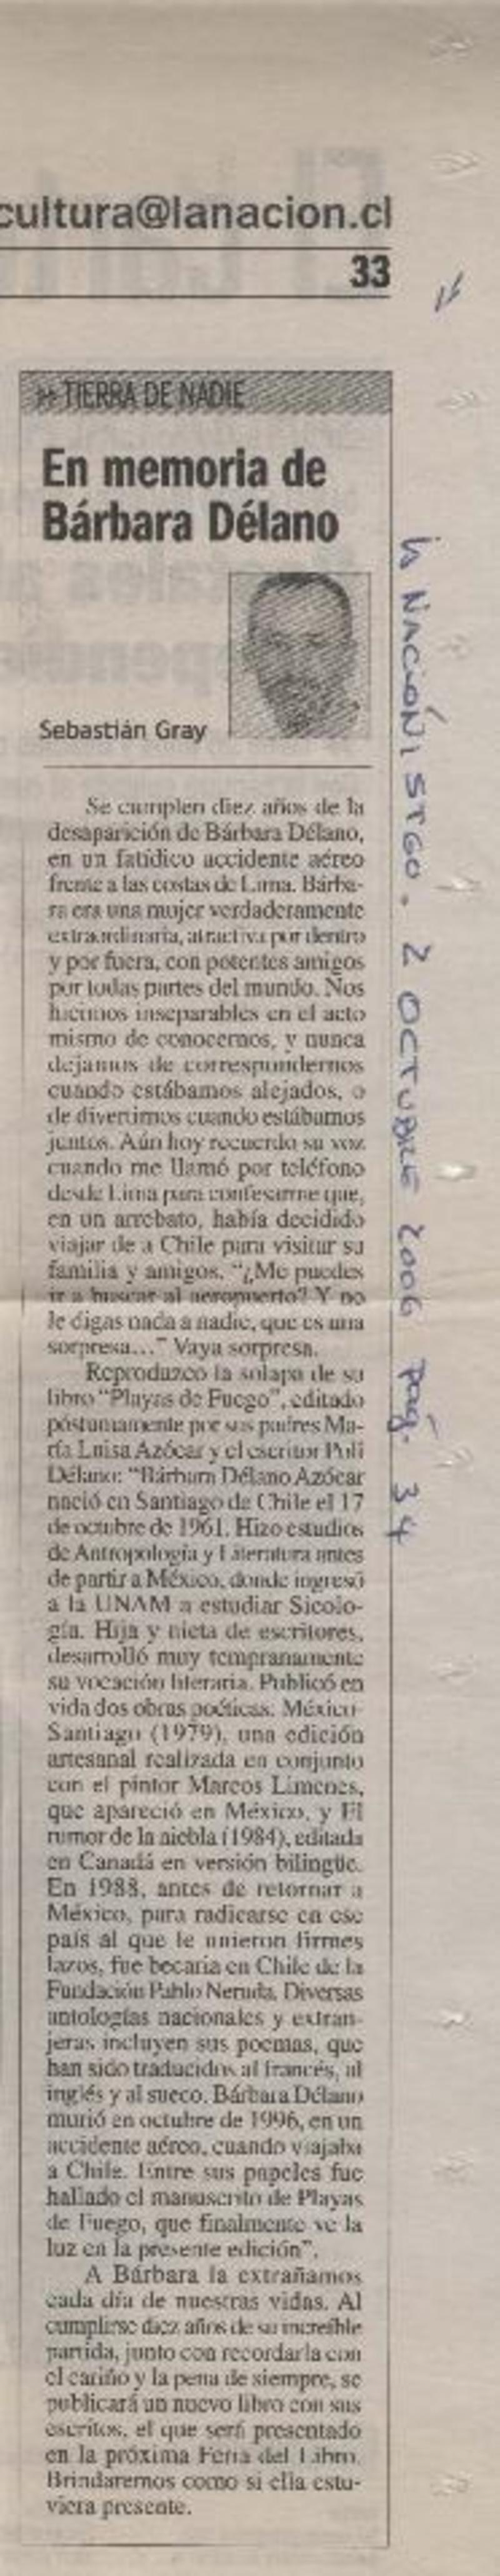 cultura@lanacion.cl
33
TIERRA DE NADIE
En memoria de
Bárbara Délano
Sebastián Gray
Se cumplen diez años de la
desaparición de Bárbara Délano,
en un fatídico accidente aéreo
frente a las costas de Lima. Bárba-
ra era una mujer verdaderamente
extraordinaria, atractiva por dentro
y por fuera, con potentes amigos
por todas partes del mundo. Nos
hicimos inseparables en el acto
mismo de conocernos, y nunca
dejamos de correspondernos
cuando estábamos alejados, o
de divertirnos cuando estábamos
juntos. Aún hoy recuerdo su voz
cuando me llamó por teléfono
desde Lima para confesarme que,
en un arrebato, había decidido
viajar de a Chile para visitar su
familia y amigos. “¿Me puedes
ir a buscar al aeropuerto? Y no
le digas nada a nadie, que es una
sorpresa...” Vaya sorpresa.
Reproduzco la solapa de su
libro “Playas de Fuego”, editado
póstumamente por sus padres Ma-
ría Luisa Azócar y el escritor Poli
Délano: “Bárbara Délano Azócar
nació en Santiago de Chile el 17
de octubre de 1961. Hizo estudios
de Antropología y Literatura antes
de partir a México, donde ingresó
a la UNAM a estudiar Sicolo-
gía. Hija y nieta de escritores,
desarrolló muy tempranamente
su vocación literaria. Publicó en
vida dos obras poéticas: México-
Santiago (1979), una edición
artesanal realizada en conjunto
con el pintor Marcos Límenes,
que apareció en México, y El
rumor de la niebla (1984), editada
en Canadá en versión bilingüe.
En 1988, antes de retornar a
México, para radicarse en ese
país al que le unieron firmes
lazos, fue becaria en Chile de la
Fundación Pablo Neruda. Diversas
antologías nacionales y extran-
jeras incluyen sus poemas, que
han sido traducidos al francés, al
inglés y al sueco. Bárbara Délano
murió en octubre de 1996, en un
accidente aéreo, cuando viajaba
a Chile. Entre sus papeles fue
hallado el manuscrito de Playas
de Fuego, que finalmente ve la
luz en la presente edición”.
A Bárbara la extrañamos
cada día de nuestras vidas. Al
cumplirse diez años de su increíble
partida, junto con recordarla con
el cariño y la pena de siempre, se
publicará un nuevo libro con sus
escritos, el que será presentado
en la próxima Feria del Libro.
Brindaremos como si ella estu-
viera presente.
la NACIÓN, STGO. 2 OCTUBRE 2006 pág. 34